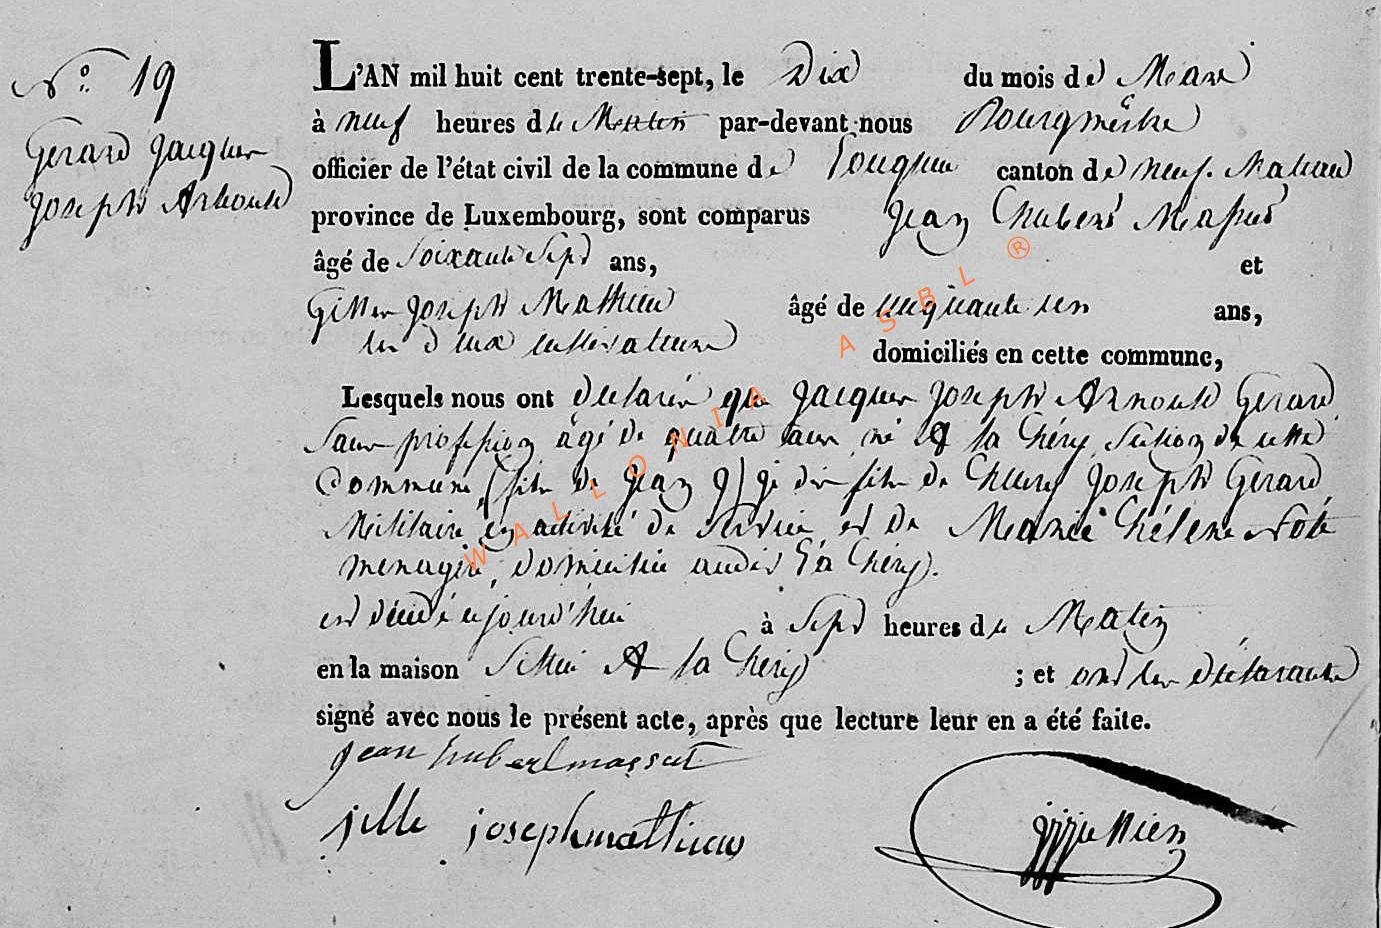 N.° 19
Gerard Jacques
Joseph Arnould
L'AN mil huit cent trente-sept, le Dix du mois de Mars
à neuf heures du Matin par-devant nous Bourgmêstre
officier de l'état civil de la commune de canton de neuf-
province de Luxembourg, sont comparus Jean hubert Massut
âgé de Soixante Sept ans, et
Gilles Joseph Mathieu âgé de cinquante un ans,
les deux cultivateurs domiciliés en cette commune,
Lesquels nous ont declarés que Jacques Joseph Arnould Gerard
Sans profession âgé de quatre ans né à la hérie Section de cette
Commune, (fils de Jean J) je dis fils de henry Joseph Gerard
Militaire en activité de Service, et de Marie hélène Noté
menagère, domiciliés audit la hérie.
est décédé aujourd'hui à Sept heures du Matin
en la maison Située A la hérie ; et ont les déclarants
signé avec nous le présent acte, après que lecture leur en a été faite.
jean hubert massut
jille joseph mathieu
WALLONIA ASBL ®